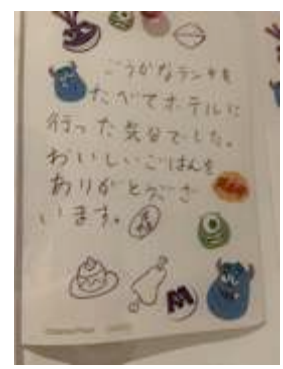 ごうかなランチを
たべてホテルに
行った気分でした。
おいしいごはんを
ありがとうござ
います。
M